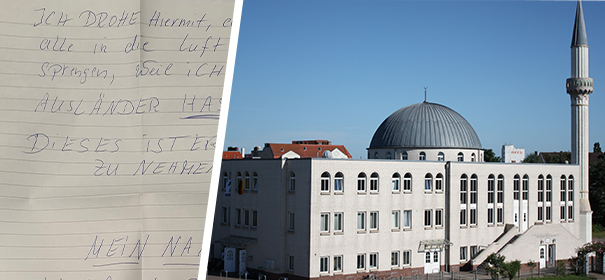 ICH DROHE Hiermit,
alle in die Luft
sprengen, weil ICH
AUSLÄNDER HAS
DIESES IST ER
ZU NEHMEN
MEIN NA